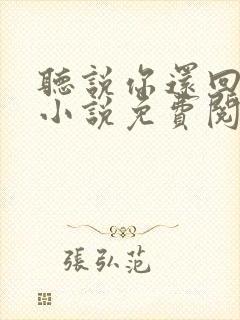 聽說你還回
小說免費閱
張弘范